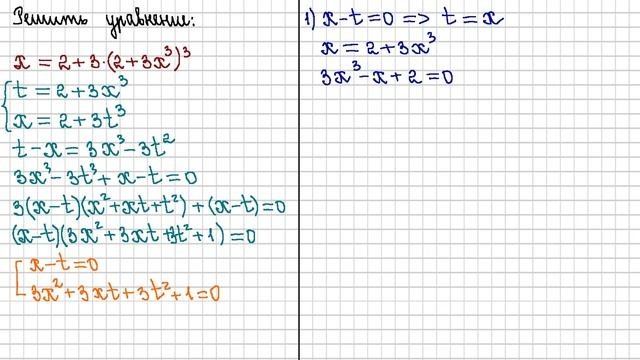 Решить уравнение:
x = 2 + 3·(2 + 3x³)³
t = 2 + 3x³
x = 2 + 3t³
t − x = 3x³ − 3t²
3x³ − 3t³ + x − t = 0
3(x − t)(x² + xt + t²) + (x − t) = 0
(x − t)(3x² + 3xt + 3t² + 1) = 0
x − t = 0
3x² + 3xt + 3t² + 1 = 0
1) x − t = 0 => t = x
x = 2 + 3x³
3x³ − x + 2 = 0